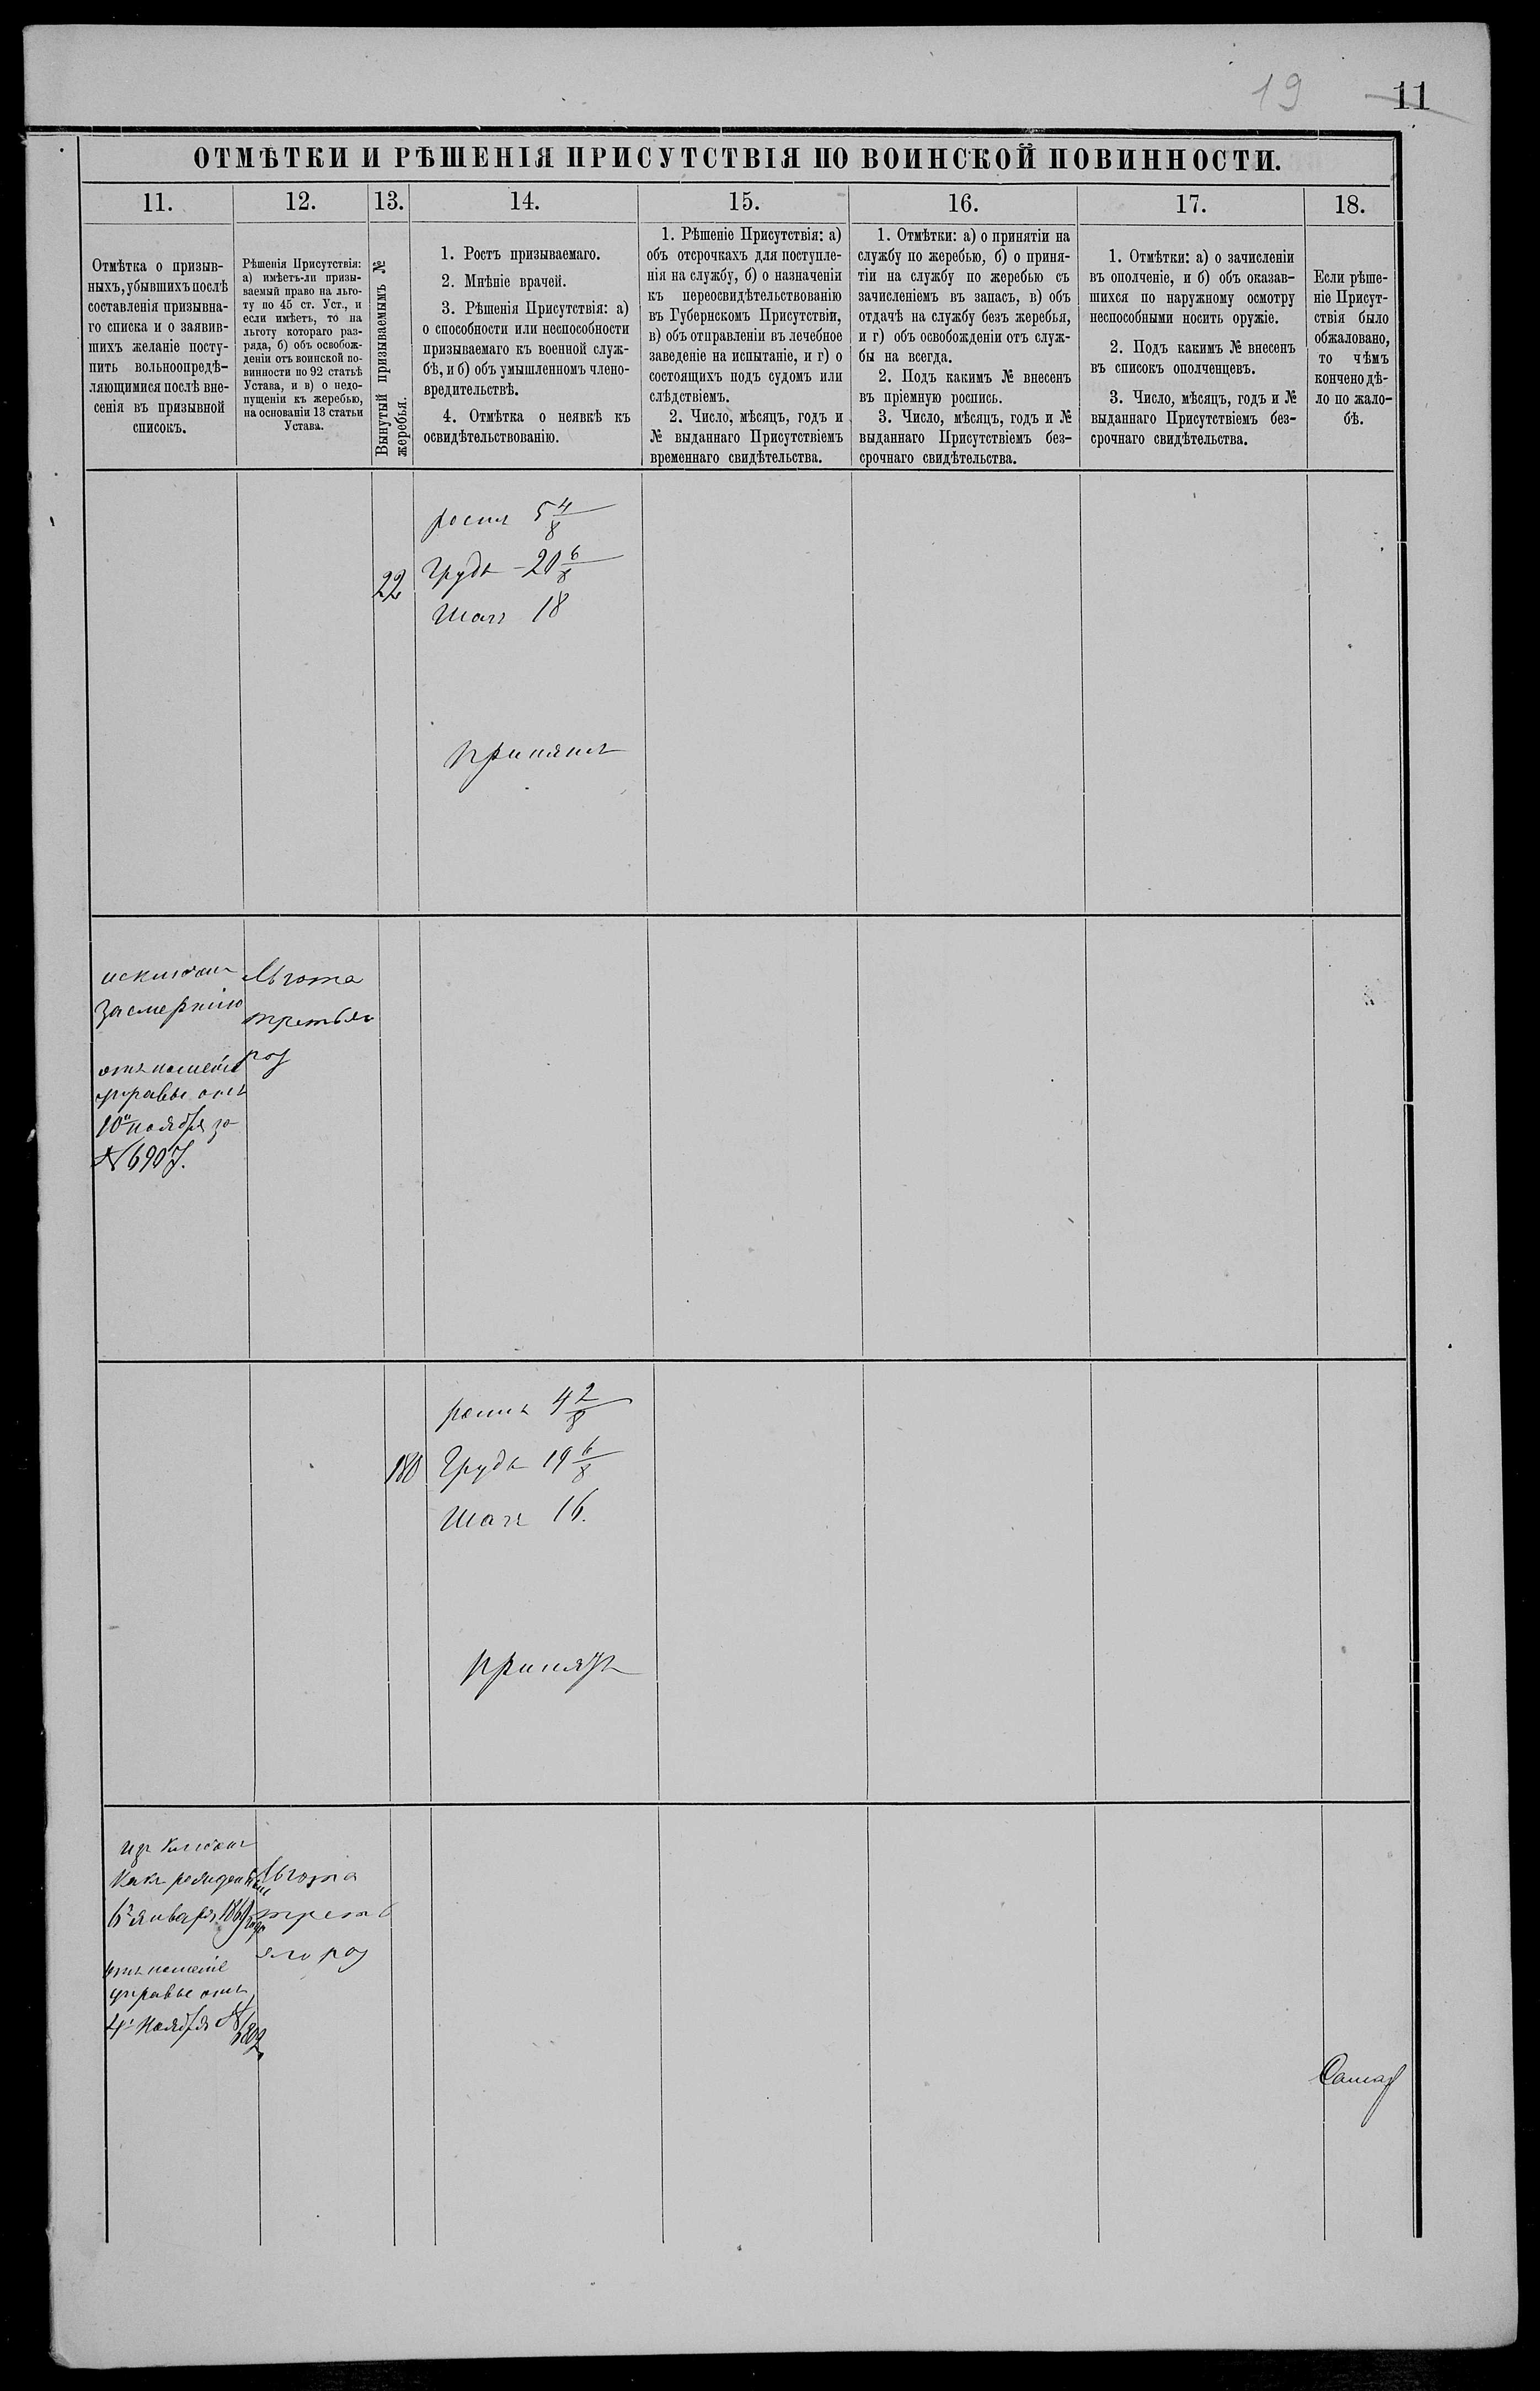 19 11
ОТМѢТКИ И РѢШЕНІЯ ПРИСУТСТВІЯ ПО ВОИНСКОЙ ПОВИННОСТИ.
11.
Отмѣтка о призыв-
ныхъ, убывшихъ послѣ
составленія призывна-
го списка и о заявив-
шихъ желаніе посту-
пить вольноопредѣ-
ляющимися послѣ вне-
сенія въ призывной
списокъ.
12.
Рѣшенія Присутствія:
а) имѣетъ-ли призы-
ваемый право на льго-
ту по 45 ст. Уст., и
если имѣетъ, то на
льготу котораго раз-
ряда, б) объ освобож-
деніи отъ воинской по-
винности по 92 статьѣ
Устава, и в) о недо-
пущеніи къ жеребью,
на основаніи 13 статьи
Устава.
13.
Вынутый призываемымъ №
жеребья.
14.
1. Ростъ призываемаго.
2. Мнѣніе врачей.
3. Рѣшенія Присутствія: а)
о способности или неспособности
призываемаго къ военной служ-
бѣ, и б) объ умышленномъ члено-
вредительствѣ.
4. Отмѣтка о неявкѣ къ
освидѣтельствованію.
15.
1. Рѣшеніе Присутствія: а)
объ отсрочкахъ для поступле-
нія на службу, б) о назначеніи
къ переосвидѣтельствованію
въ Губернскомъ Присутствіи,
в) объ отправленіи въ лечебное
заведеніе на испытаніе, и г) о
состоящихъ подъ судомъ или
слѣдствіемъ.
2. Число, мѣсяцъ, годъ и
№ выданнаго Присутствіемъ
временнаго свидѣтельства.
16.
1. Отмѣтки: а) о принятіи на
службу по жеребью, б) о приня-
тіи на службу по жеребью съ
зачисленіемъ въ запасъ, в) объ
отдачѣ на службу безъ жеребья,
и г) объ освобожденіи отъ служ-
бы на всегда.
2. Подъ какимъ № внесенъ
въ пріемную роспись.
3. Число, мѣсяцъ, годъ и №
выданнаго Присутствіемъ без-
срочнаго свидѣтельства.
17.
1. Отмѣтки: а) о зачисленіи
въ ополченіе, и б) объ оказав-
шихся по наружному осмотру
неспособными носить оружіе.
2. Подъ какимъ № внесенъ
въ списокъ ополченцевъ.
3. Число, мѣсяцъ, годъ и №
выданнаго Присутствіемъ без-
срочнаго свидѣтельства.
18.
Если рѣше-
ніе Присут-
ствія было
обжаловано,
то чѣмъ
кончено дѣ-
ло по жало-
бѣ.
22
ростъ 5 4/8
Грудь - 20 6/8
Шагъ 18
принятъ
исключенъ
за смертію
управы отъ
10го ноября за
№ 6907.
Льгота
третьяго
раз
180
ростъ 4 2/8
Грудь 19 6/8
Шагъ 16.
принятъ
исключенъ
какъ
6го января 186 года
управы отъ
4го ноября №
Льгота
треть
яго раз